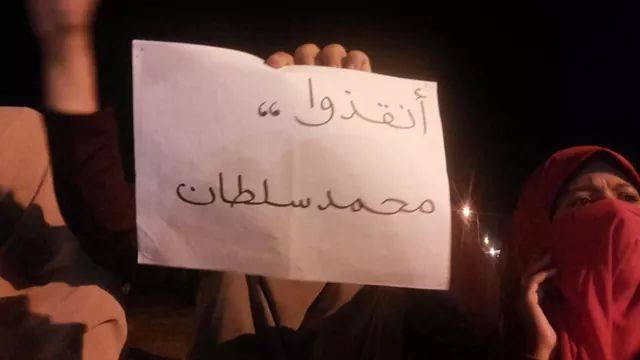 أنقذوا ،،
محمد سلطان